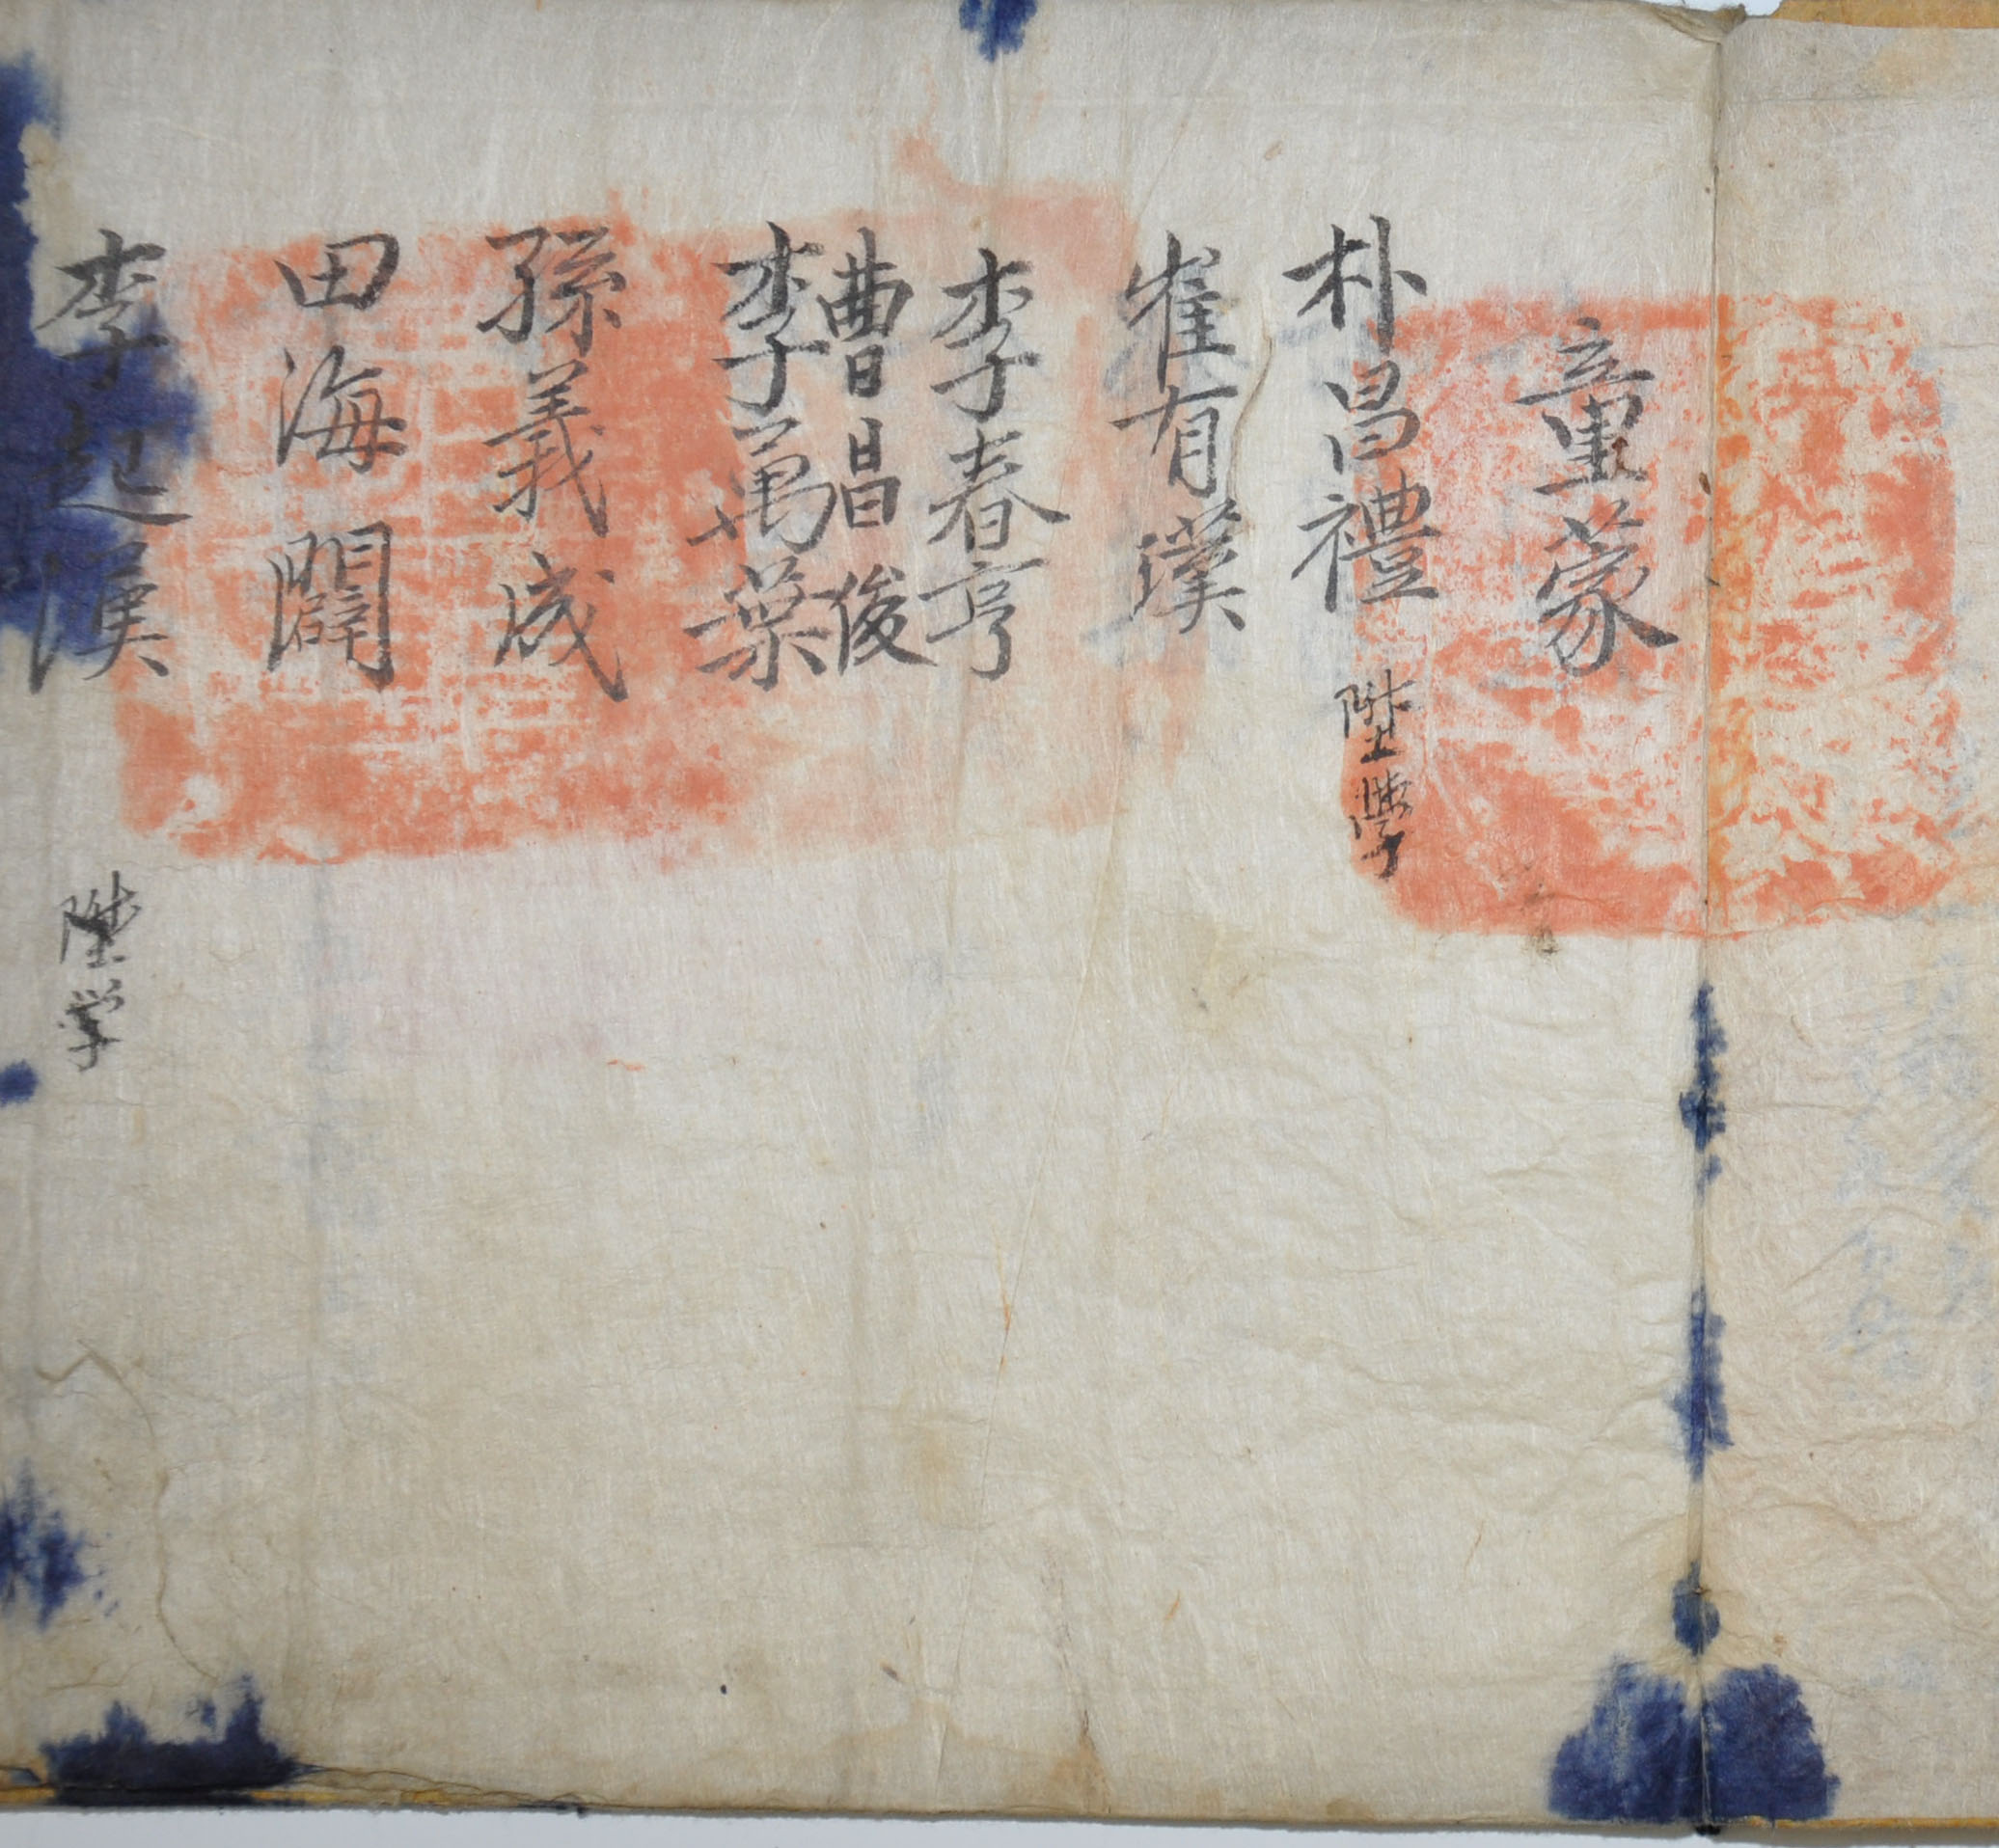 童蒙
朴昌禮 陞學
崔有漢
李春亨
曺昌俊
李萬葉
孫義成
田海闢
李起漢 陞学